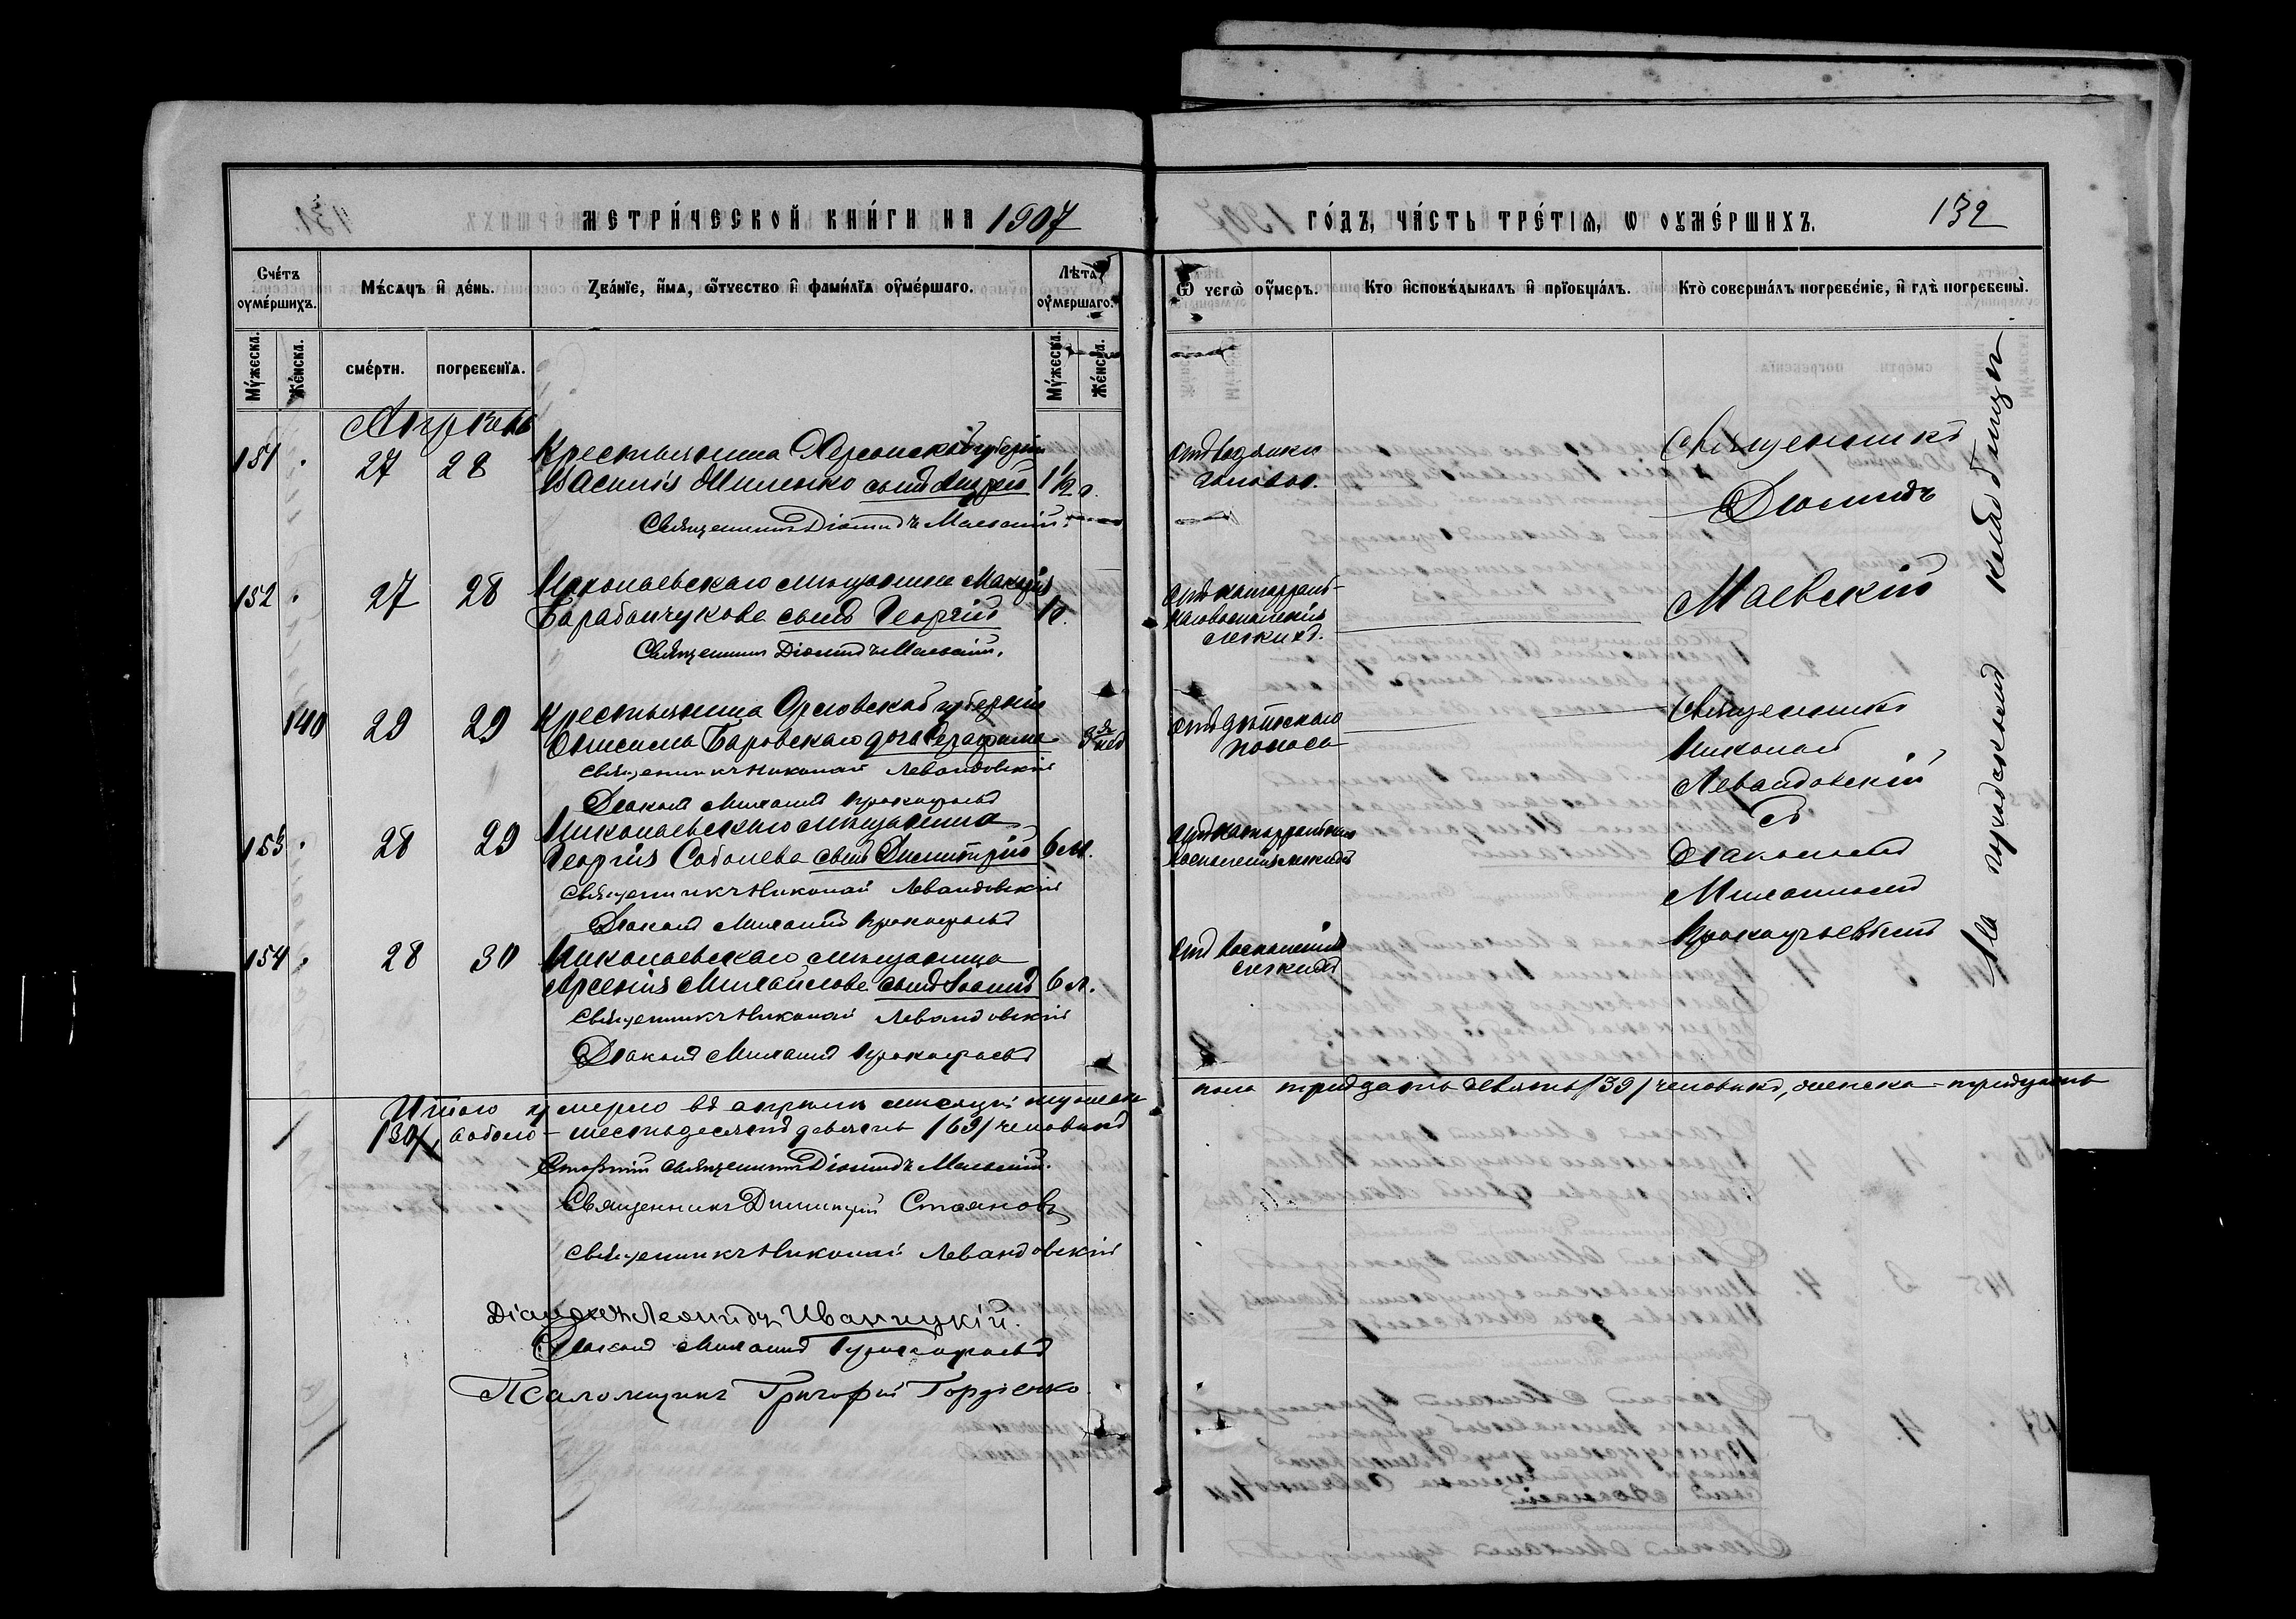 МЕТРИ́ЧЕСКОЙ КНИ́ГИ НА 1907
ГО́ДЪ, ЧА́СТЬ ТРЕ́ТІѦ, Ѡ ОУМЕ́РШИХЪ.
132
Счéтъ оумéршихъ.
Мѣ́сяцъ и҆ де́нь.
Зва́нїе, и҆́мѧ, ѻ҆́тчество и҆ фами́лїѧ оу҆ме́ршаго.
Лѣ́та оу҆мершаго.
Ѿ чегѡ̀ оу҆́меръ.
Кто̀ и҆сповѣ́дывалъ и҆ прїобща́лъ.
Кто̀ соверша́лъ погребе́нїе, и҆ гдѣ̀ погребены̀.
Мꙋ́жеска.
Же́нска.
сме́рти.
погребе́нїѧ.
Мꙋ́жеска.
Же́нска.
Апрель
151 27 28 Крестьянина Херсонской губерніи
Василія Миненко сынъ Андрей 1½ г.
Священникъ Діомидъ Маевскій.
отъ водянки
головы.
Священникъ
Діомидъ
Маевскій
152 27 28 Николаевскаго мѣщанина
Барабанчукова сынъ Георгій
Священникъ Діомидъ Маевскій.
отъ катарраль-
наго воспаленія
легкихъ.
140 29 29 Крестьянина Орловской губерніи
Боровскаго дочь Серафима
Священникъ Николай Левандовскій
Діаконъ Михаилъ Прокофьевъ
отъ дѣтскаго
поноса
Священникъ
Николай
Левандовскій
съ
діакономъ
Михаиломъ
Прокофьевымъ
153 28 29 Николаевскаго мѣщанина
Георгія Соболева сынъ Димитрій 6 м.
Священникъ Николай Левандовскій
Діаконъ Михаилъ Прокофьевъ
воспаленія легкихъ
154 28 30 Николаевскаго мѣщанина
Арсенія Михайлова сынъ Іоаннъ
Священникъ Николай Левандовскій
Діаконъ Михаилъ Прокофьевъ
отъ воспаленія
легкихъ
На городскомъ кладбищѣ
Итого умерло въ апрѣлѣ мѣсяцѣ мужеска
пола тридцать девять /39/ человѣкъ, женска – тридцать
/30/, а обоего – шестьдесятъ девять /69/ человѣкъ
Священникъ Діомидъ Маевскій.
Священникъ Димитрій Стояновъ
Священникъ Николай Левандовскій
Діаконъ Леонидъ Иваницкій.
Діаконъ Михаилъ Прокофьевъ
Псаломщикъ Григорій Гордіенко